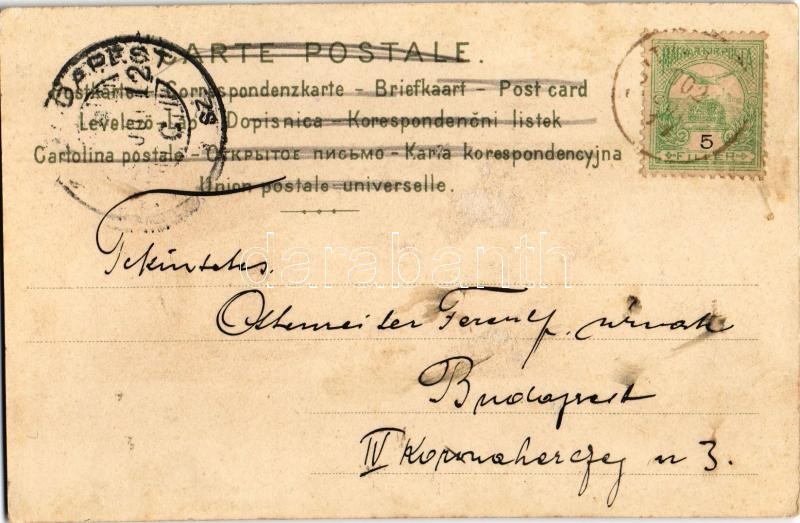 CARTE POSTALE.
Postkarte – Correspondenzkarte – Briefkaart – Post card
Levelező-Lap – Dopisnica – Korespondenčni listek
Cartolina postale – Открытое письмо – Karta korespondencyjna
Union postale universelle.
MAGYAR KIR. POSTA
5
FILLÉR
BUDAPEST
902
darabanth
Tekintetes.
Ostenreiter Ferencz. úrnak
Budapest
IV Koronaherczeg u 3.